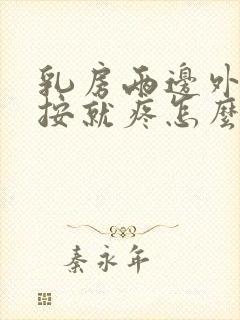 乳房兩邊外
按就疼怎麼
秦永年